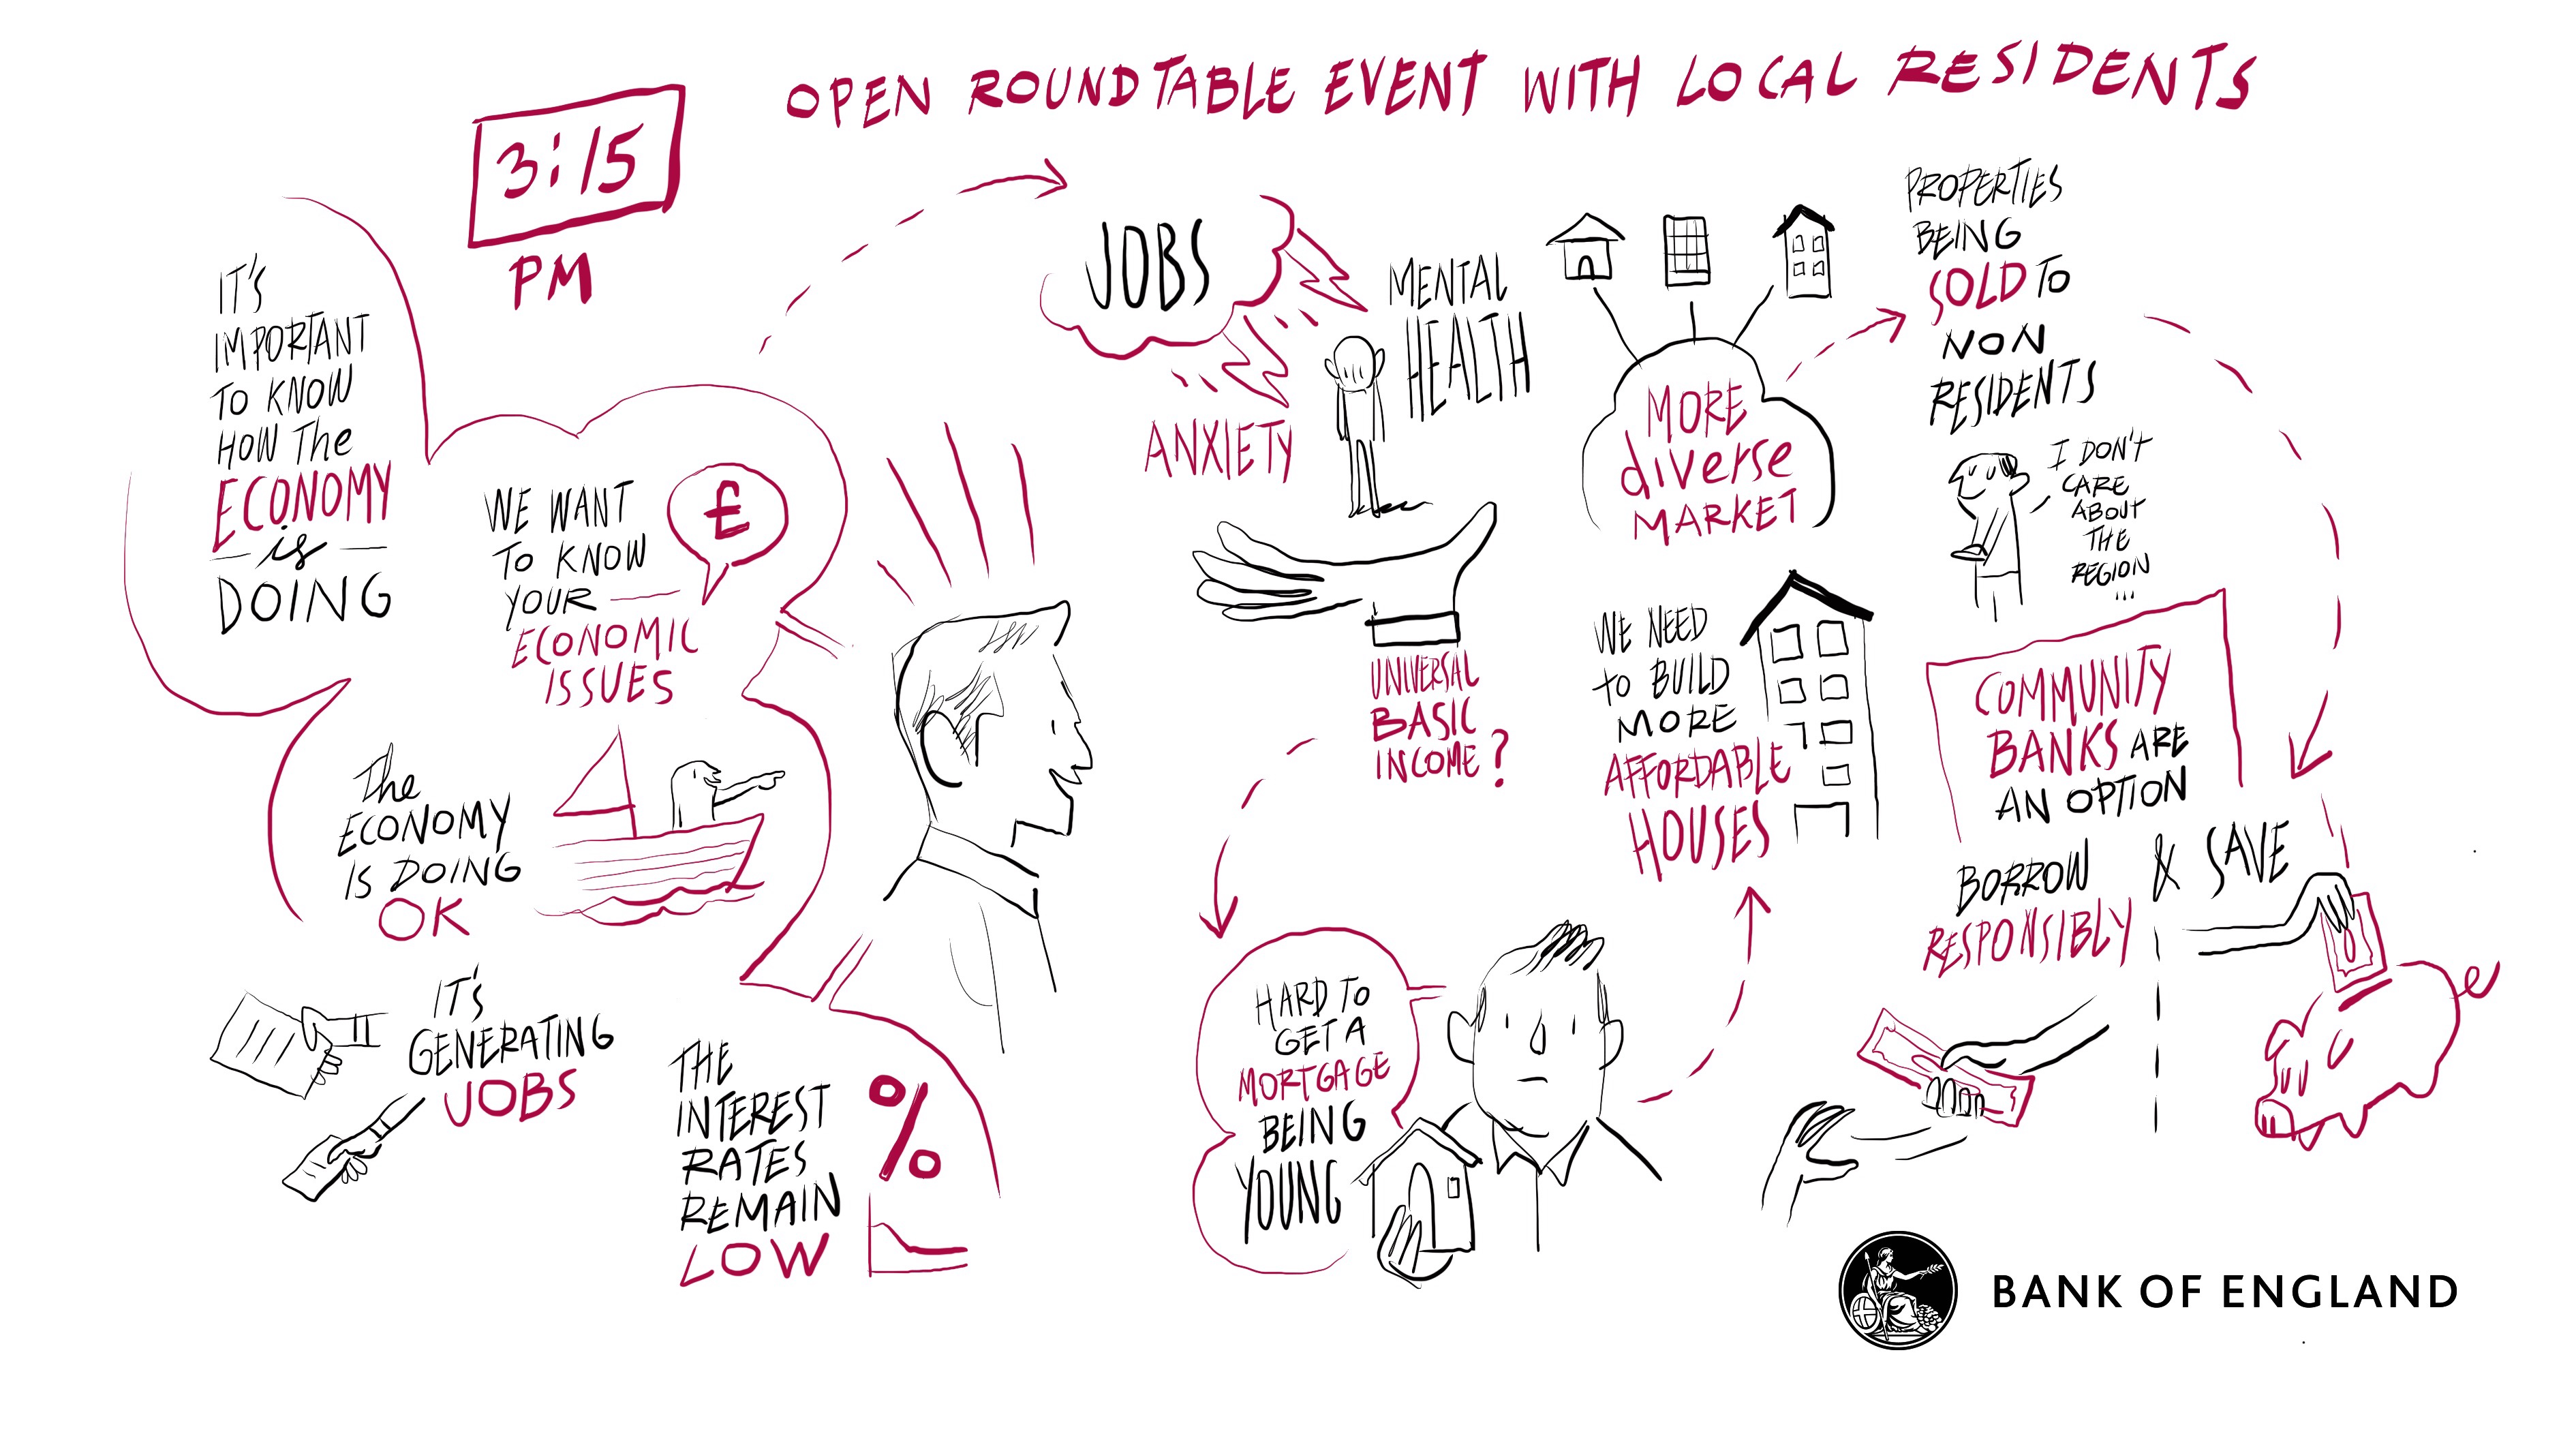 OPEN ROUNDTABLE EVENT WITH LOCAL RESIDENTS
3:15
PM
IT'S
IMPORTANT
TO KNOW
HOW The
ECONOMY
is
DOING
WE WANT
TO KNOW
YOUR
ECONOMIC
ISSUES
£
The
ECONOMY
IS DOING
OK
IT'S
GENERATING
JOBS
THE
INTEREST
RATES
REMAIN
LOW
%
JOBS
ANXIETY
MENTAL
HEALTH
UNIVERSAL
BASIC
INCOME?
HARD TO
GET A
MORTGAGE
BEING
YOUNG
WE NEED
to BUILD
MORE
AFFORDABLE
HOUSES
MORE
diverse
MARKET
PROPERTIES
BEING
SOLD TO
NON
RESIDENTS
I DON'T
CARE
ABOUT
THE
REGION
...
COMMUNITY
BANKS ARE
AN OPTION
BORROW & SAVE
RESPONSIBLY
BANK OF ENGLAND